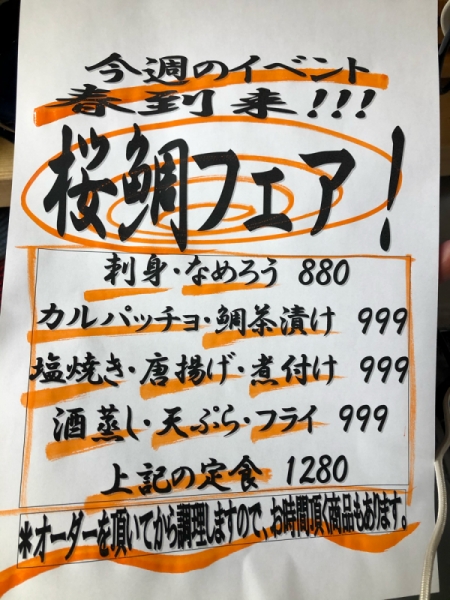 今週のイベント
春到来!!!
桜鯛フェア!
刺身・なめろう 880
カルパッチョ・鯛茶漬け 999
塩焼き・唐揚げ・煮付け 999
酒蒸し・天ぷら・フライ 999
上記の定食 1280
*オーダーを頂いてから調理しますので、お時間頂く商品もあります。